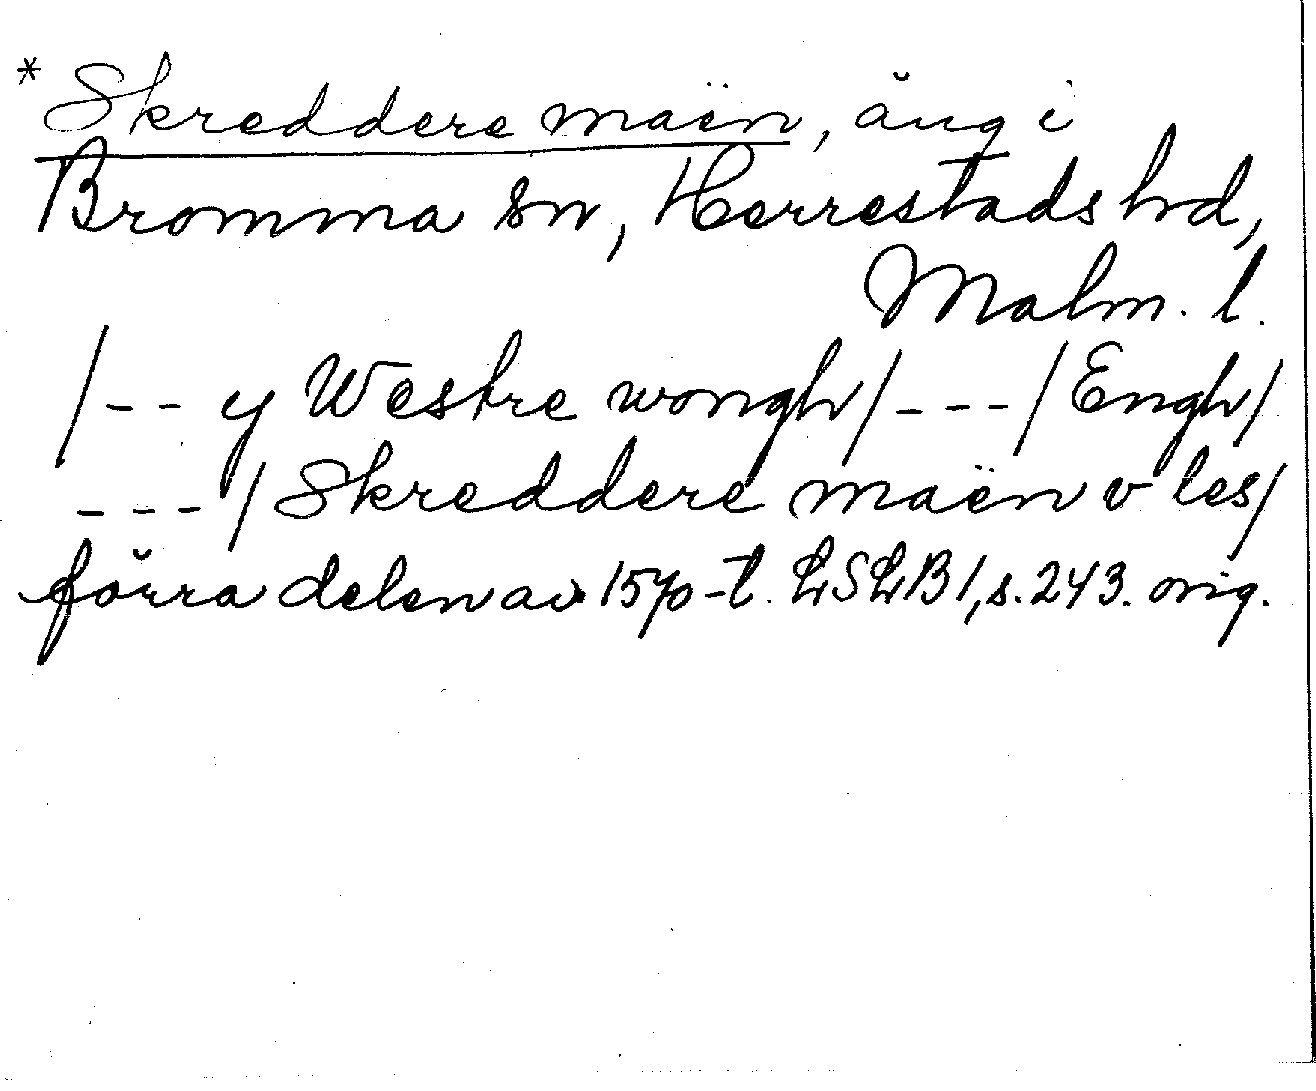 * Skreddere maën, äng i
Bromma sn, Herrestads hd,
Malm. l.
/-- y Westre wongh/---/Engh/
---/Skreddere maën v les/
förra delen av 1570-t. LSLB 1, s. 243. orig.